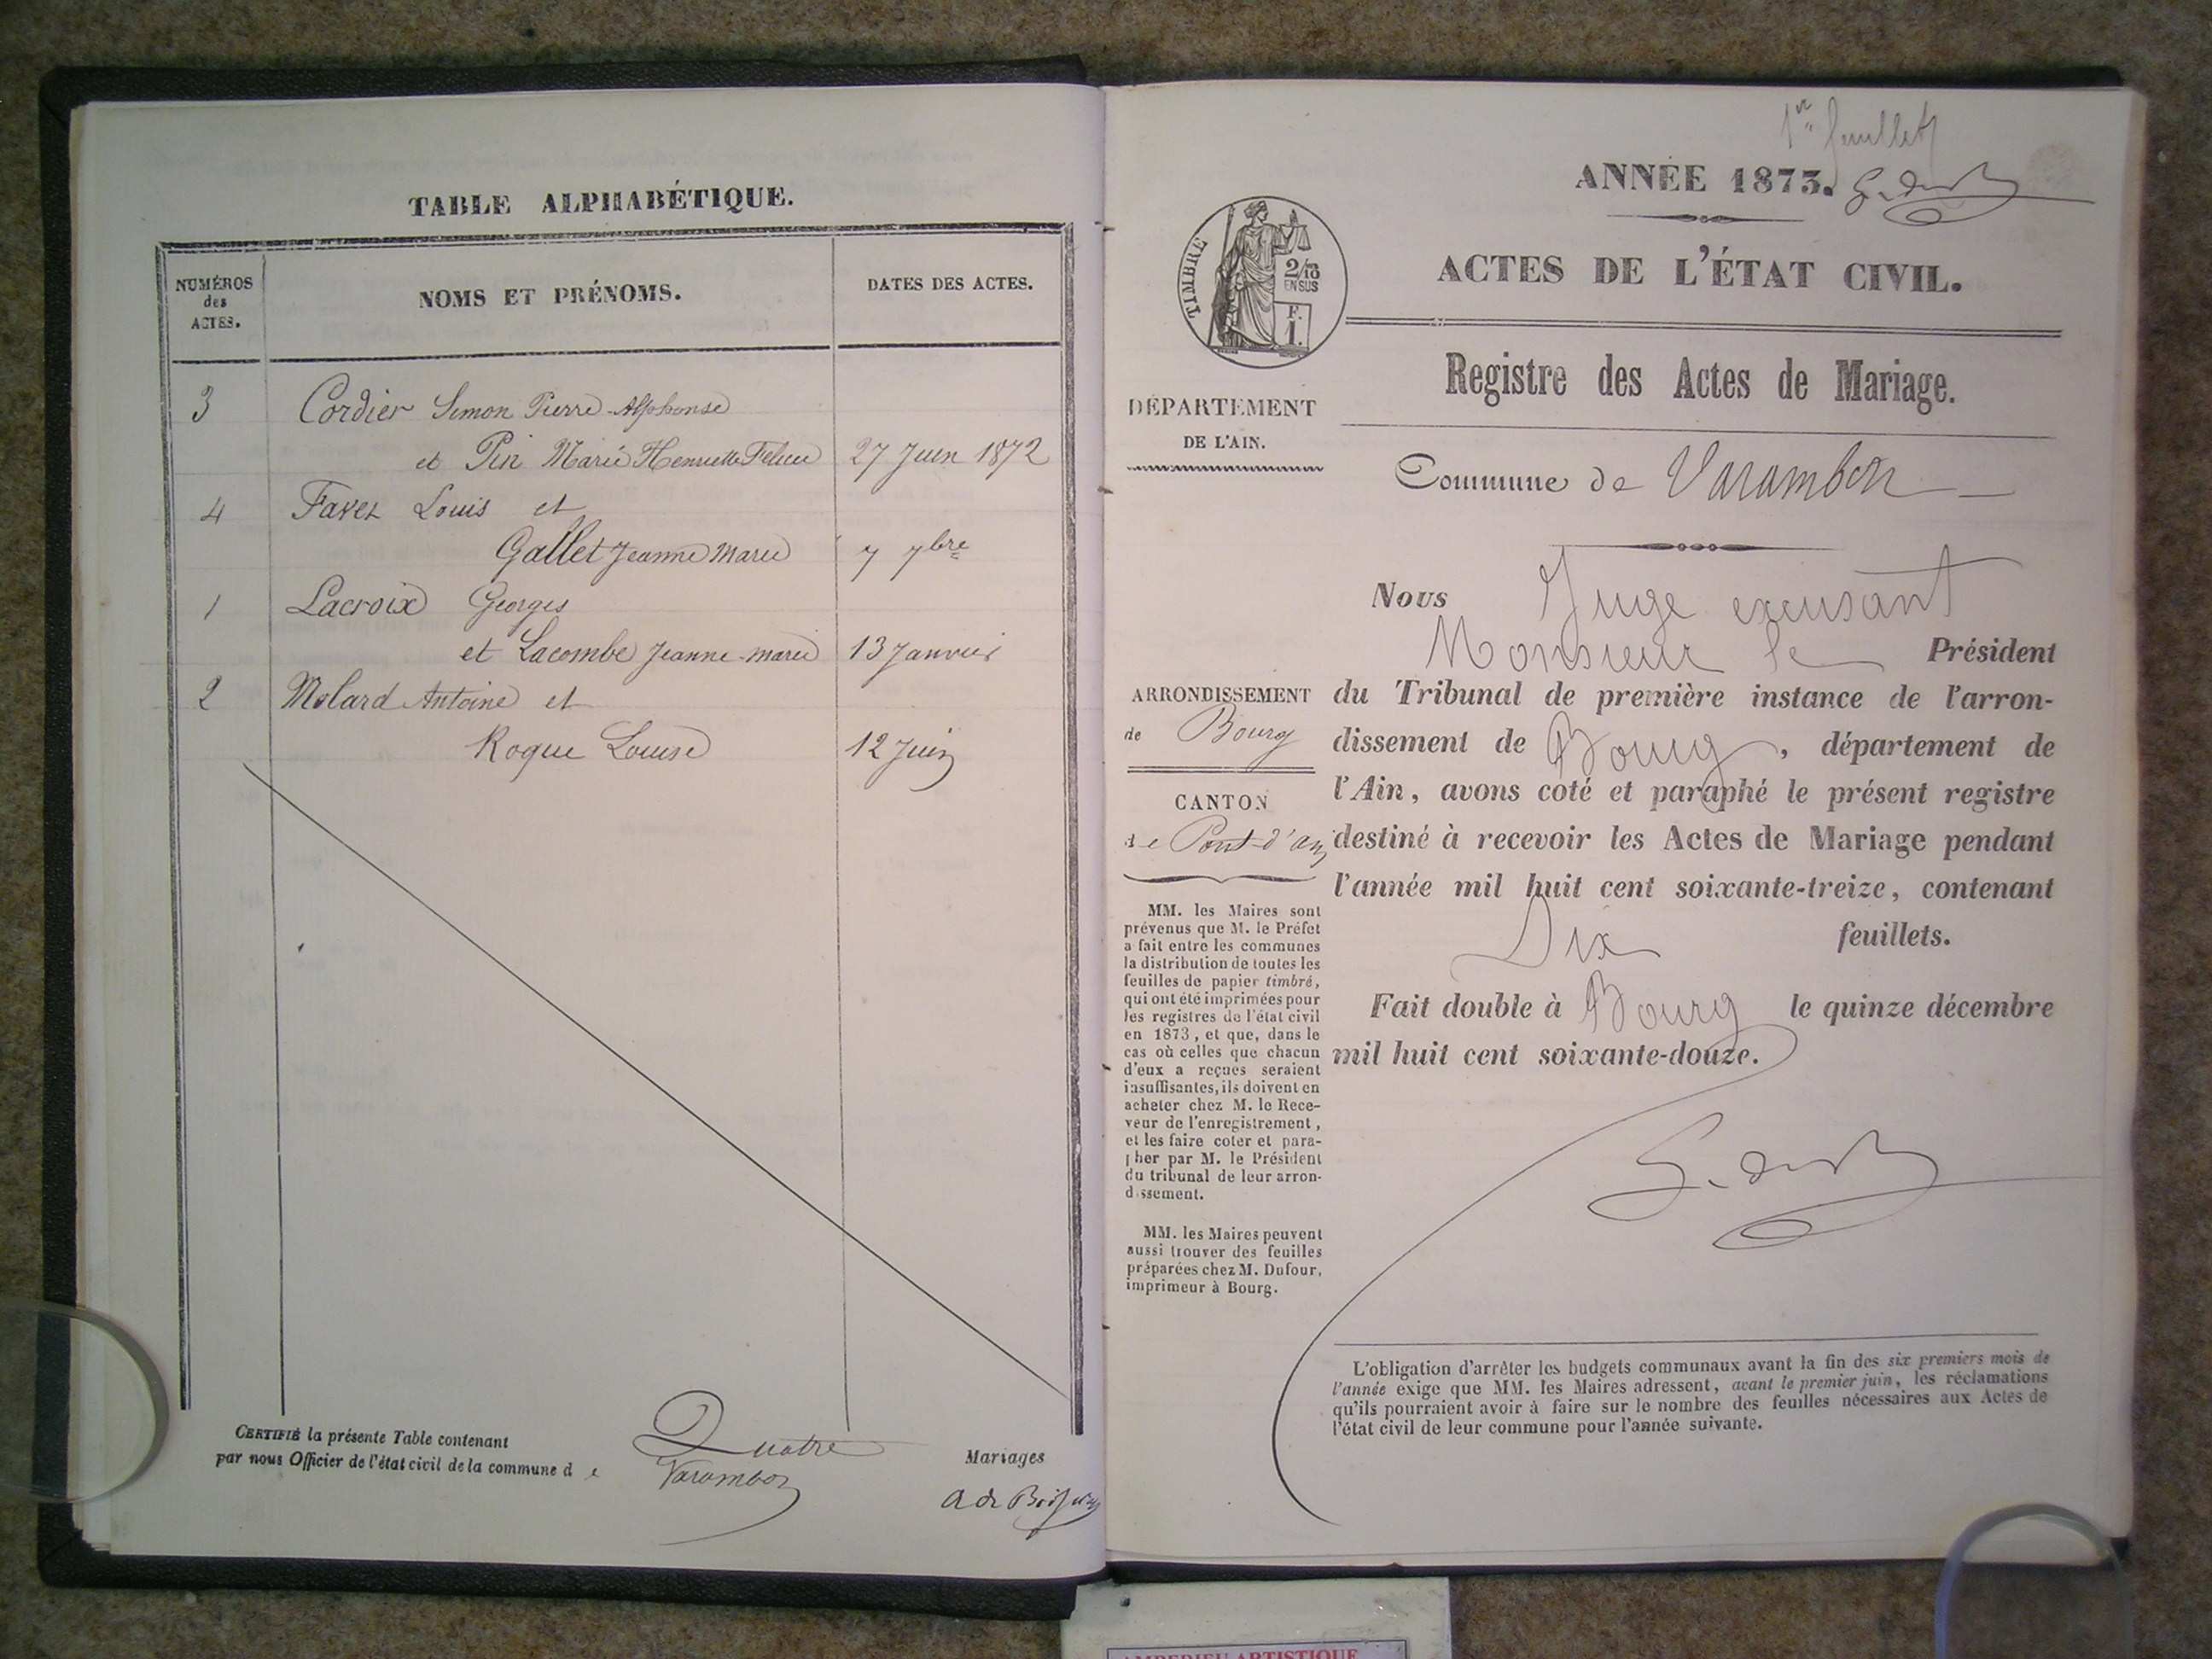 TABLE ALPHABÉTIQUE.
NUMÉROS
des
ACTES.
NOMS ET PRÉNOMS.
DATES DES ACTES.
3 Cordier Simon Pierre Alphonse
et Pin Marie Henriette Felicie 27 Juin 1872
4 Favez Louis et
Gallet Jeanne Marie 7 7bre
1 Lacroix Georges
et Lacombe Jeanne marie 13 Janvier
2 Molard Antoine et
Roque Louise 12 Juin
CERTIFIÉ la présente Table contenant Quatre Mariages
par nous Officier de l'état civil de la commune de Varambon
1er feuillet
ANNÉE 1873.
ACTES DE L'ÉTAT CIVIL.
TIMBRE
2/10
EN SUS
F.
1.
Registre des Actes de Mariage.
DÉPARTEMENT
DE L'AIN.
Commune de Varambon
Nous Juge excusant
Monsieur le Président
du Tribunal de première instance de l'arron-
dissement de Bourg, département de
l'Ain, avons coté et paraphé le présent registre
destiné à recevoir les Actes de Mariage pendant
l'année mil huit cent soixante-treize, contenant
Dix feuillets.
Fait double à Bourg le quinze décembre
mil huit cent soixante-douze.
ARRONDISSEMENT
de Bourg
CANTON
de Pont-d'ain
MM. les Maires sont
prévenus que M. le Préfet
a fait entre les communes
la distribution de toutes les
feuilles de papier timbré,
qui ont été imprimées pour
les registres de l'état civil
en 1873, et que, dans le
cas où celles que chacun
d'eux a reçues seraient
insuffisantes, ils doivent en
acheter chez M. le Rece-
veur de l'enregistrement,
et les faire coter et para-
pher par M. le Président
du tribunal de leur arron-
dissement.
MM. les Maires peuvent
aussi trouver des feuilles
préparées chez M. Dufour,
imprimeur à Bourg.
L'obligation d'arrêter les budgets communaux avant la fin des six premiers mois de
l'année exige que MM. les Maires adressent, avant le premier juin, les réclamations
qu'ils pourraient avoir à faire sur le nombre des feuilles nécessaires aux Actes de
l'état civil de leur commune pour l'année suivante.
AMBERIEU ARTISTIQUE